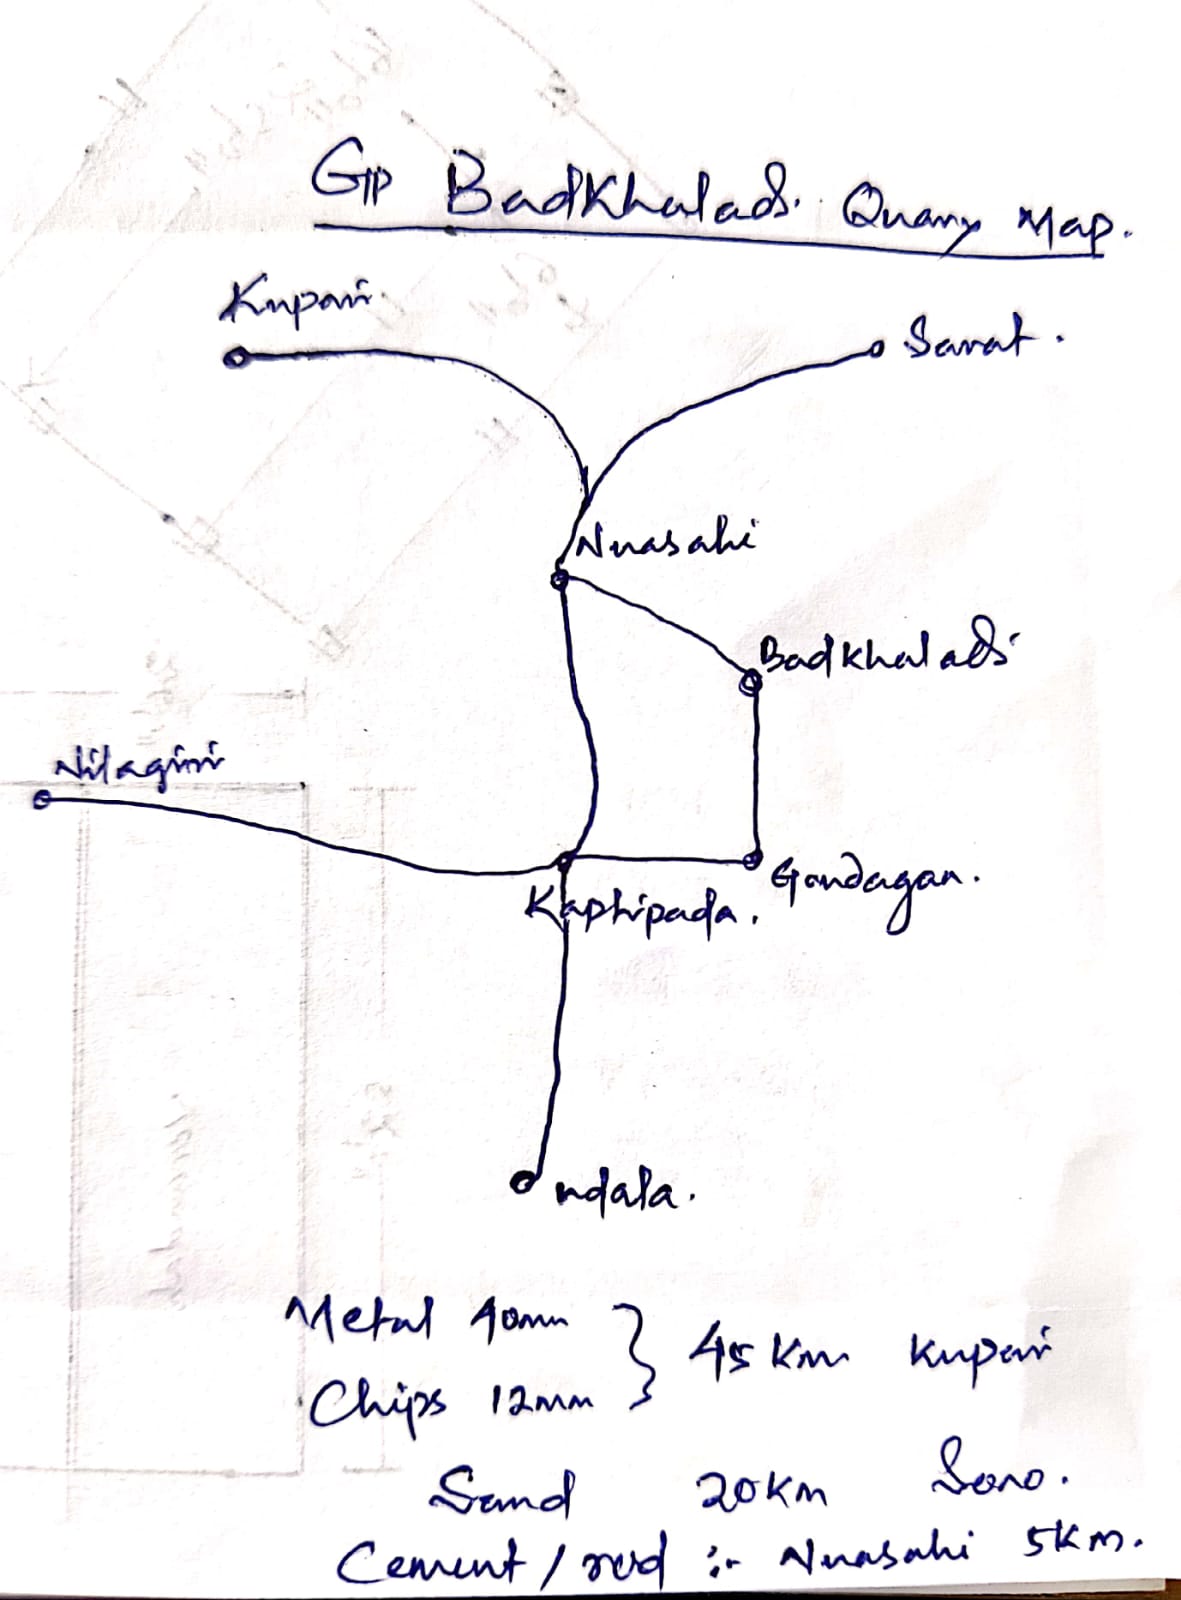 GP Badkhaladi Quarry Map.
Kupari
Sarat.
Nuasahi
Badkhaladi
Nilagiri
Gondagan.
Kaptipada.
udala.
Metal 40mm } 45 Km Kupari
Chips 12mm
Sand 20KM Sono.
Cement / rod :- Nuasahi 5Km.